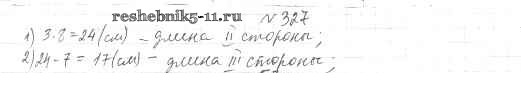 reshebnik5-11.ru №327
1) 3·8=24(см) – длина II стороны;
2) 24-7=17(см) – длина III стороны;